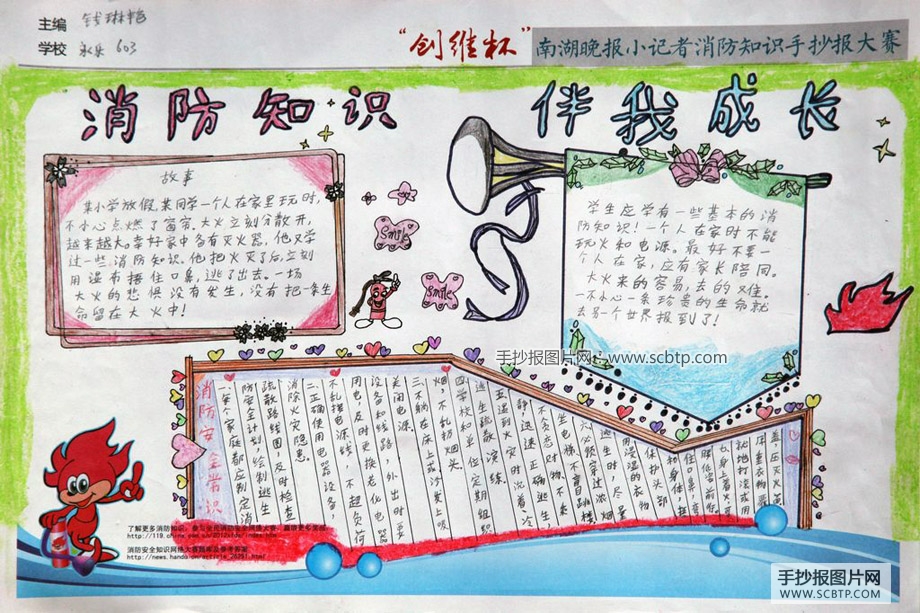 主编 钱琳艳
学校 永乐 603
“创维杯”南湖晚报小记者消防知识手抄报大赛
消防知识 伴我成长
故事
某小学放假,某同学一个人在家里玩时,
不小心点燃了窗帘,大火立刻分散开,
越来越大。幸好家中备有灭火器,他又学
过一些消防知识。他把火灭了后,立刻
用湿布捂住口鼻,逃了出去。一场
大火的悲惧没有发生,没有把一条生
命留在大火中!
Smile
smile
学生应学有一些基本的消
防知识!一个人在家时不能
玩火和电源。最好不要一
个人在家,应有家长陪同。
大火来的容易,去的又难。
一不小心一条珍贵的生命就
去另一个世界报到了!
手抄报图片网 www.scbtp.com
消防安全常识
一、每个家庭都应制定消
防安全计划,绘制逃生
疏散路线图,及时检查
消除火灾隐患。
二、正确使用电器设备,
不乱接电源线,不超负荷
用电,及时更换老化电器
设备和线路,外出时要
关闭电源。
三、不躺在床上或沙发上吸
烟,不乱扔烟头。
四、学校和单位定期组织
逃生疏散演练。
五、遇到火灾时沉着、冷
静,迅速正确逃生,
不贪恋财物、不乘
坐电梯、不盲目跳楼
了解更多消防知识,参与全民消防安全网络大赛,赢取更多奖品
消防安全知识网络大赛题库及参考答案
手抄报图片网
WWW.SCBTP.COM